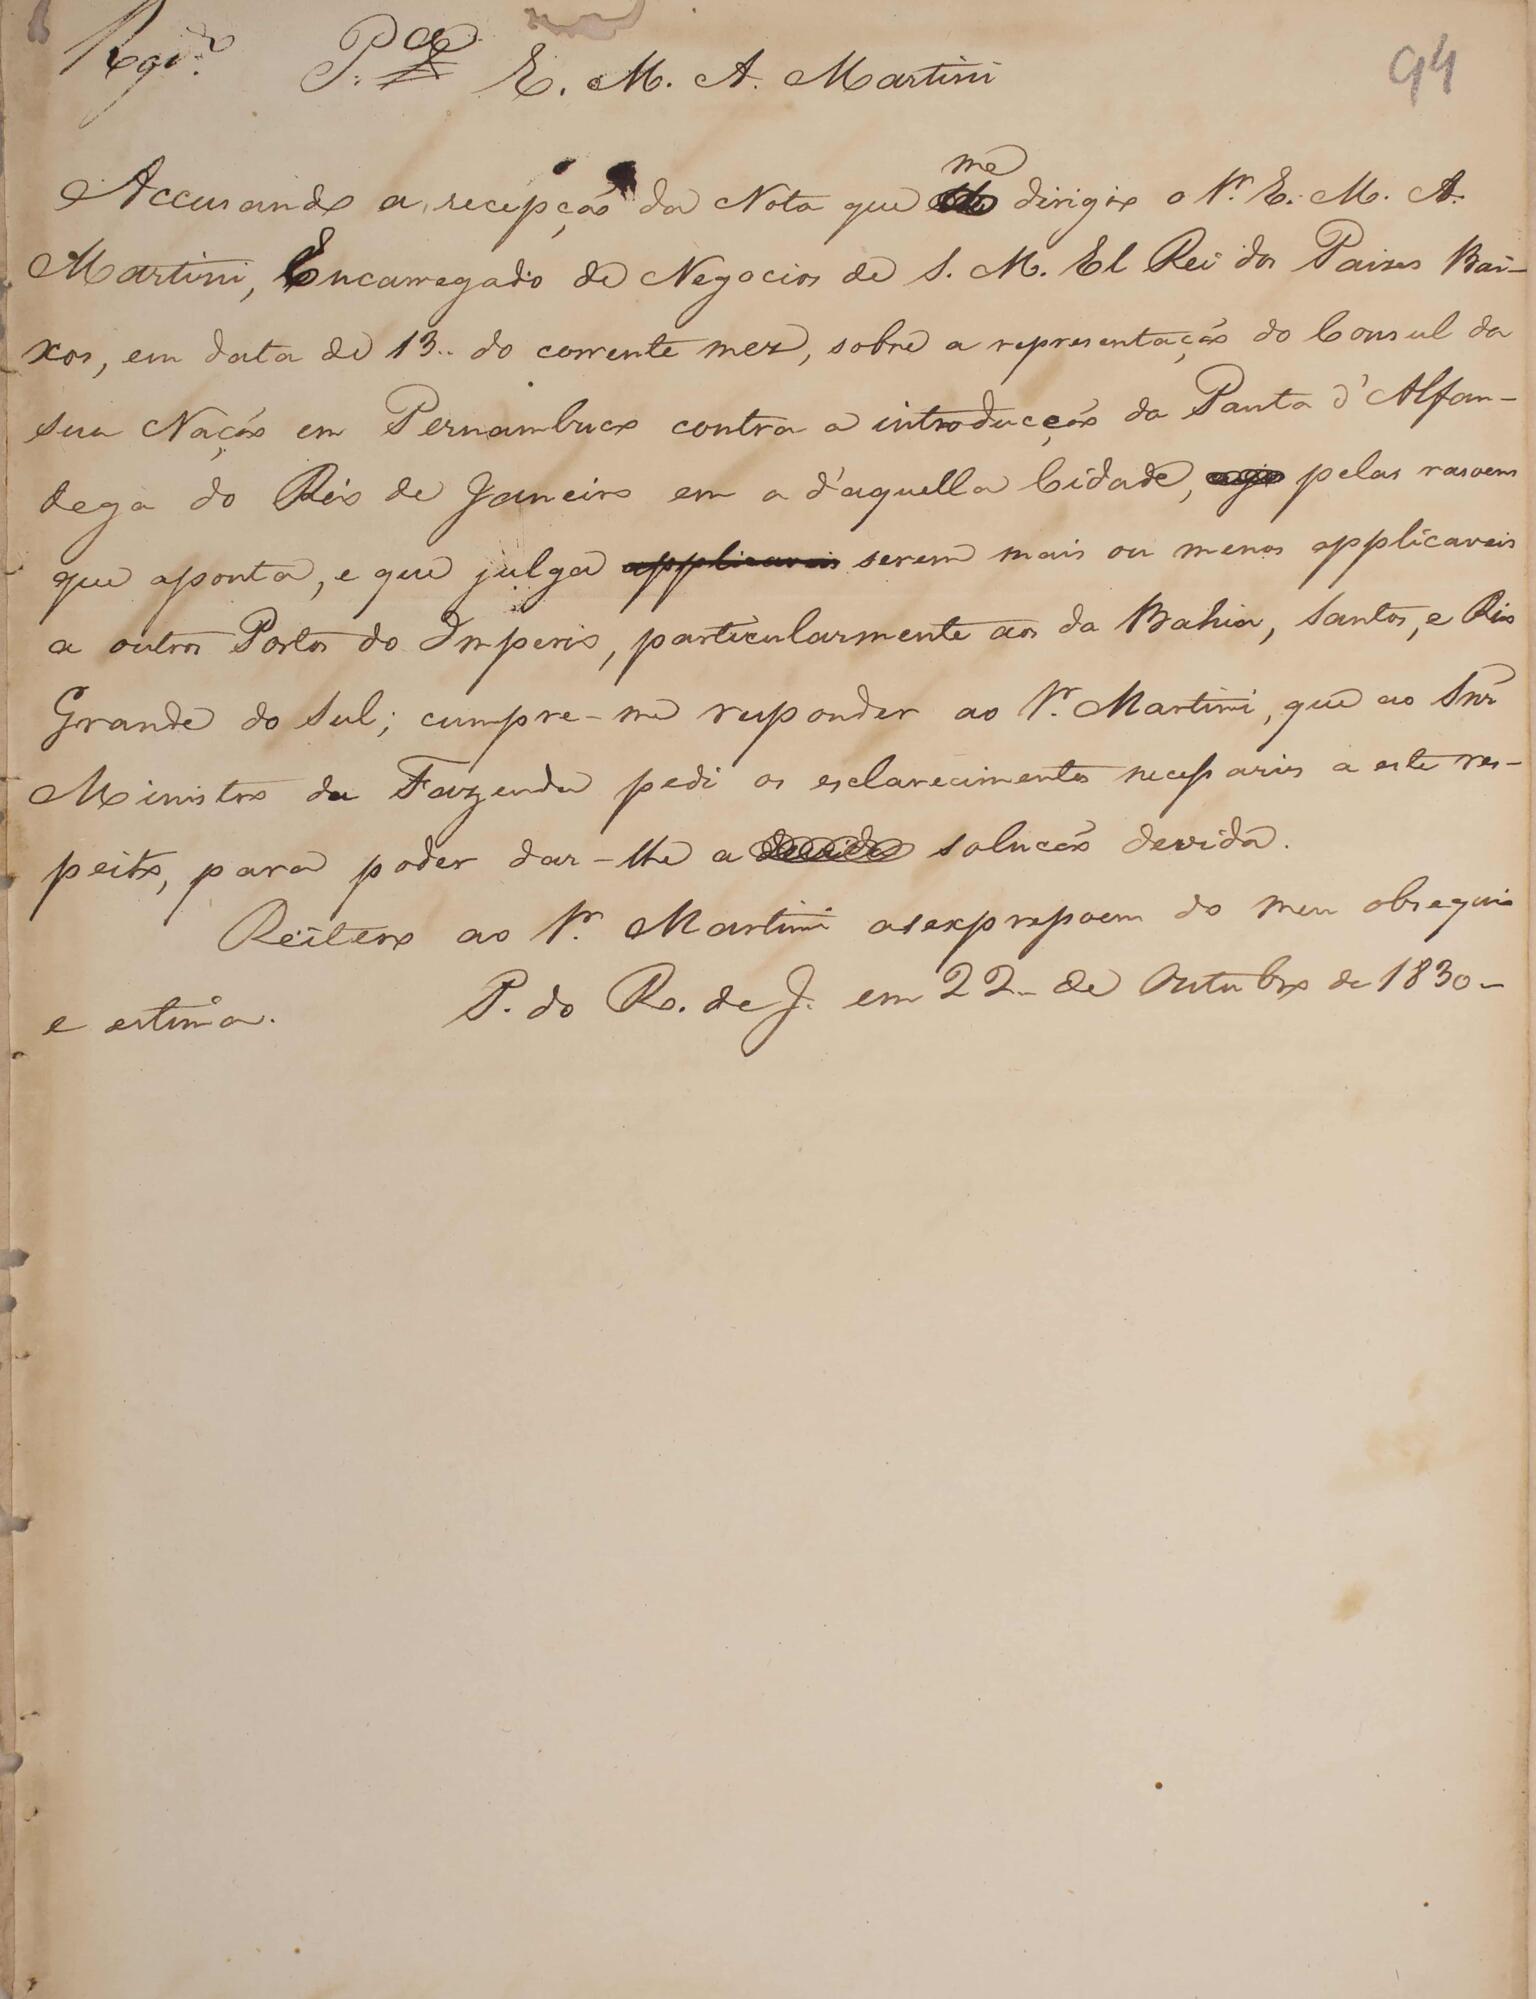 Regi.do P.a E. M. A. Martini 94
me
Accusando a recepção da Nota que dirigio o Sr. E. M. A.
Martini, Encarregado de Negocios de S. M. El Rei dos Paizes Bai-
xos, em data de 13.. do corrente mez, sobre a representação do Consul da
sua Nação em Pernambuco contra a introducção da Pauta d'Alfan-
dega do Rio de Janeiro em a d'aquella Cidade, pelas rasoens
que aponta, e que julga applicaveis serem mais ou menos applicaveis
a outros Portos do Imperio, particularmente aos da Bahia, Santos, e Rio
Grande do Sul; cumpre-me responder ao Sr. Martini, que ao Snr
Ministro da Fazenda pedi os esclarecimentos necessarios a este res-
peito, para poder dar-lhe a devida solucão devida.
Reitero ao Sr. Martini as expressoens do meu obsequio
e estima. P. do R. de J. em 22.. de Outubro de 1830-